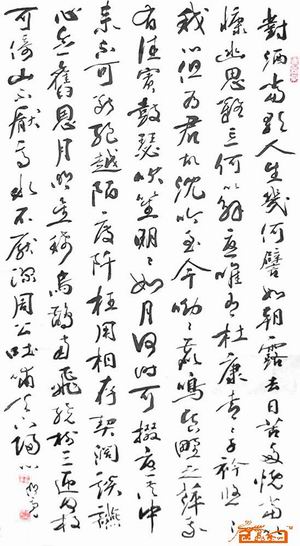 對酒當歌人生幾何譬如朝露去日苦多慨當以
慷幽思難忘何以解憂唯有杜康青〻子衿悠〻
我心但為君故沈吟至今呦〻鹿鳴食野之蘋我
有佳賓鼓瑟吹笙明〻如月何時可掇憂從中
來不可斷絕越陌度阡枉用相存契闊談讌
心念舊恩月明星稀烏鵲南飛繞樹三匝何枝
可依山不厭高水不厭深周公吐哺天下歸心